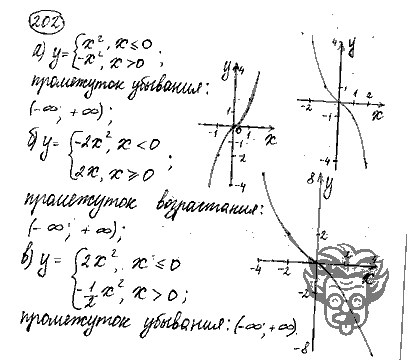 202
а) y = { x², x ≤ 0
-x², x > 0 ;
промежуток убывания:
(-∞; +∞);
б) y = { -2x², x < 0
2x, x ≥ 0 ;
промежуток возрастания:
(-∞; +∞);
в) y = { 2x², x ≤ 0
-½x², x > 0;
промежуток убывания: (-∞; +∞).
y 4
1
-1 0 1 x
-1
-2
-4
4 y
1
-2 -1 1 2
-1 x
-4
8 y
2
-4 -2
-2
-8